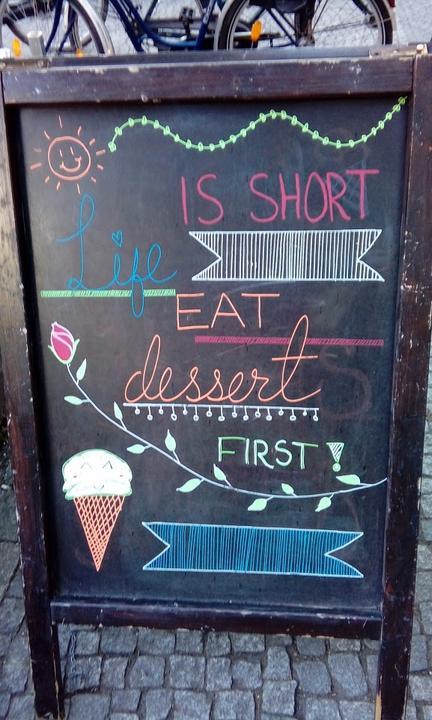 Life IS SHORT
EAT
dessert
FIRST!